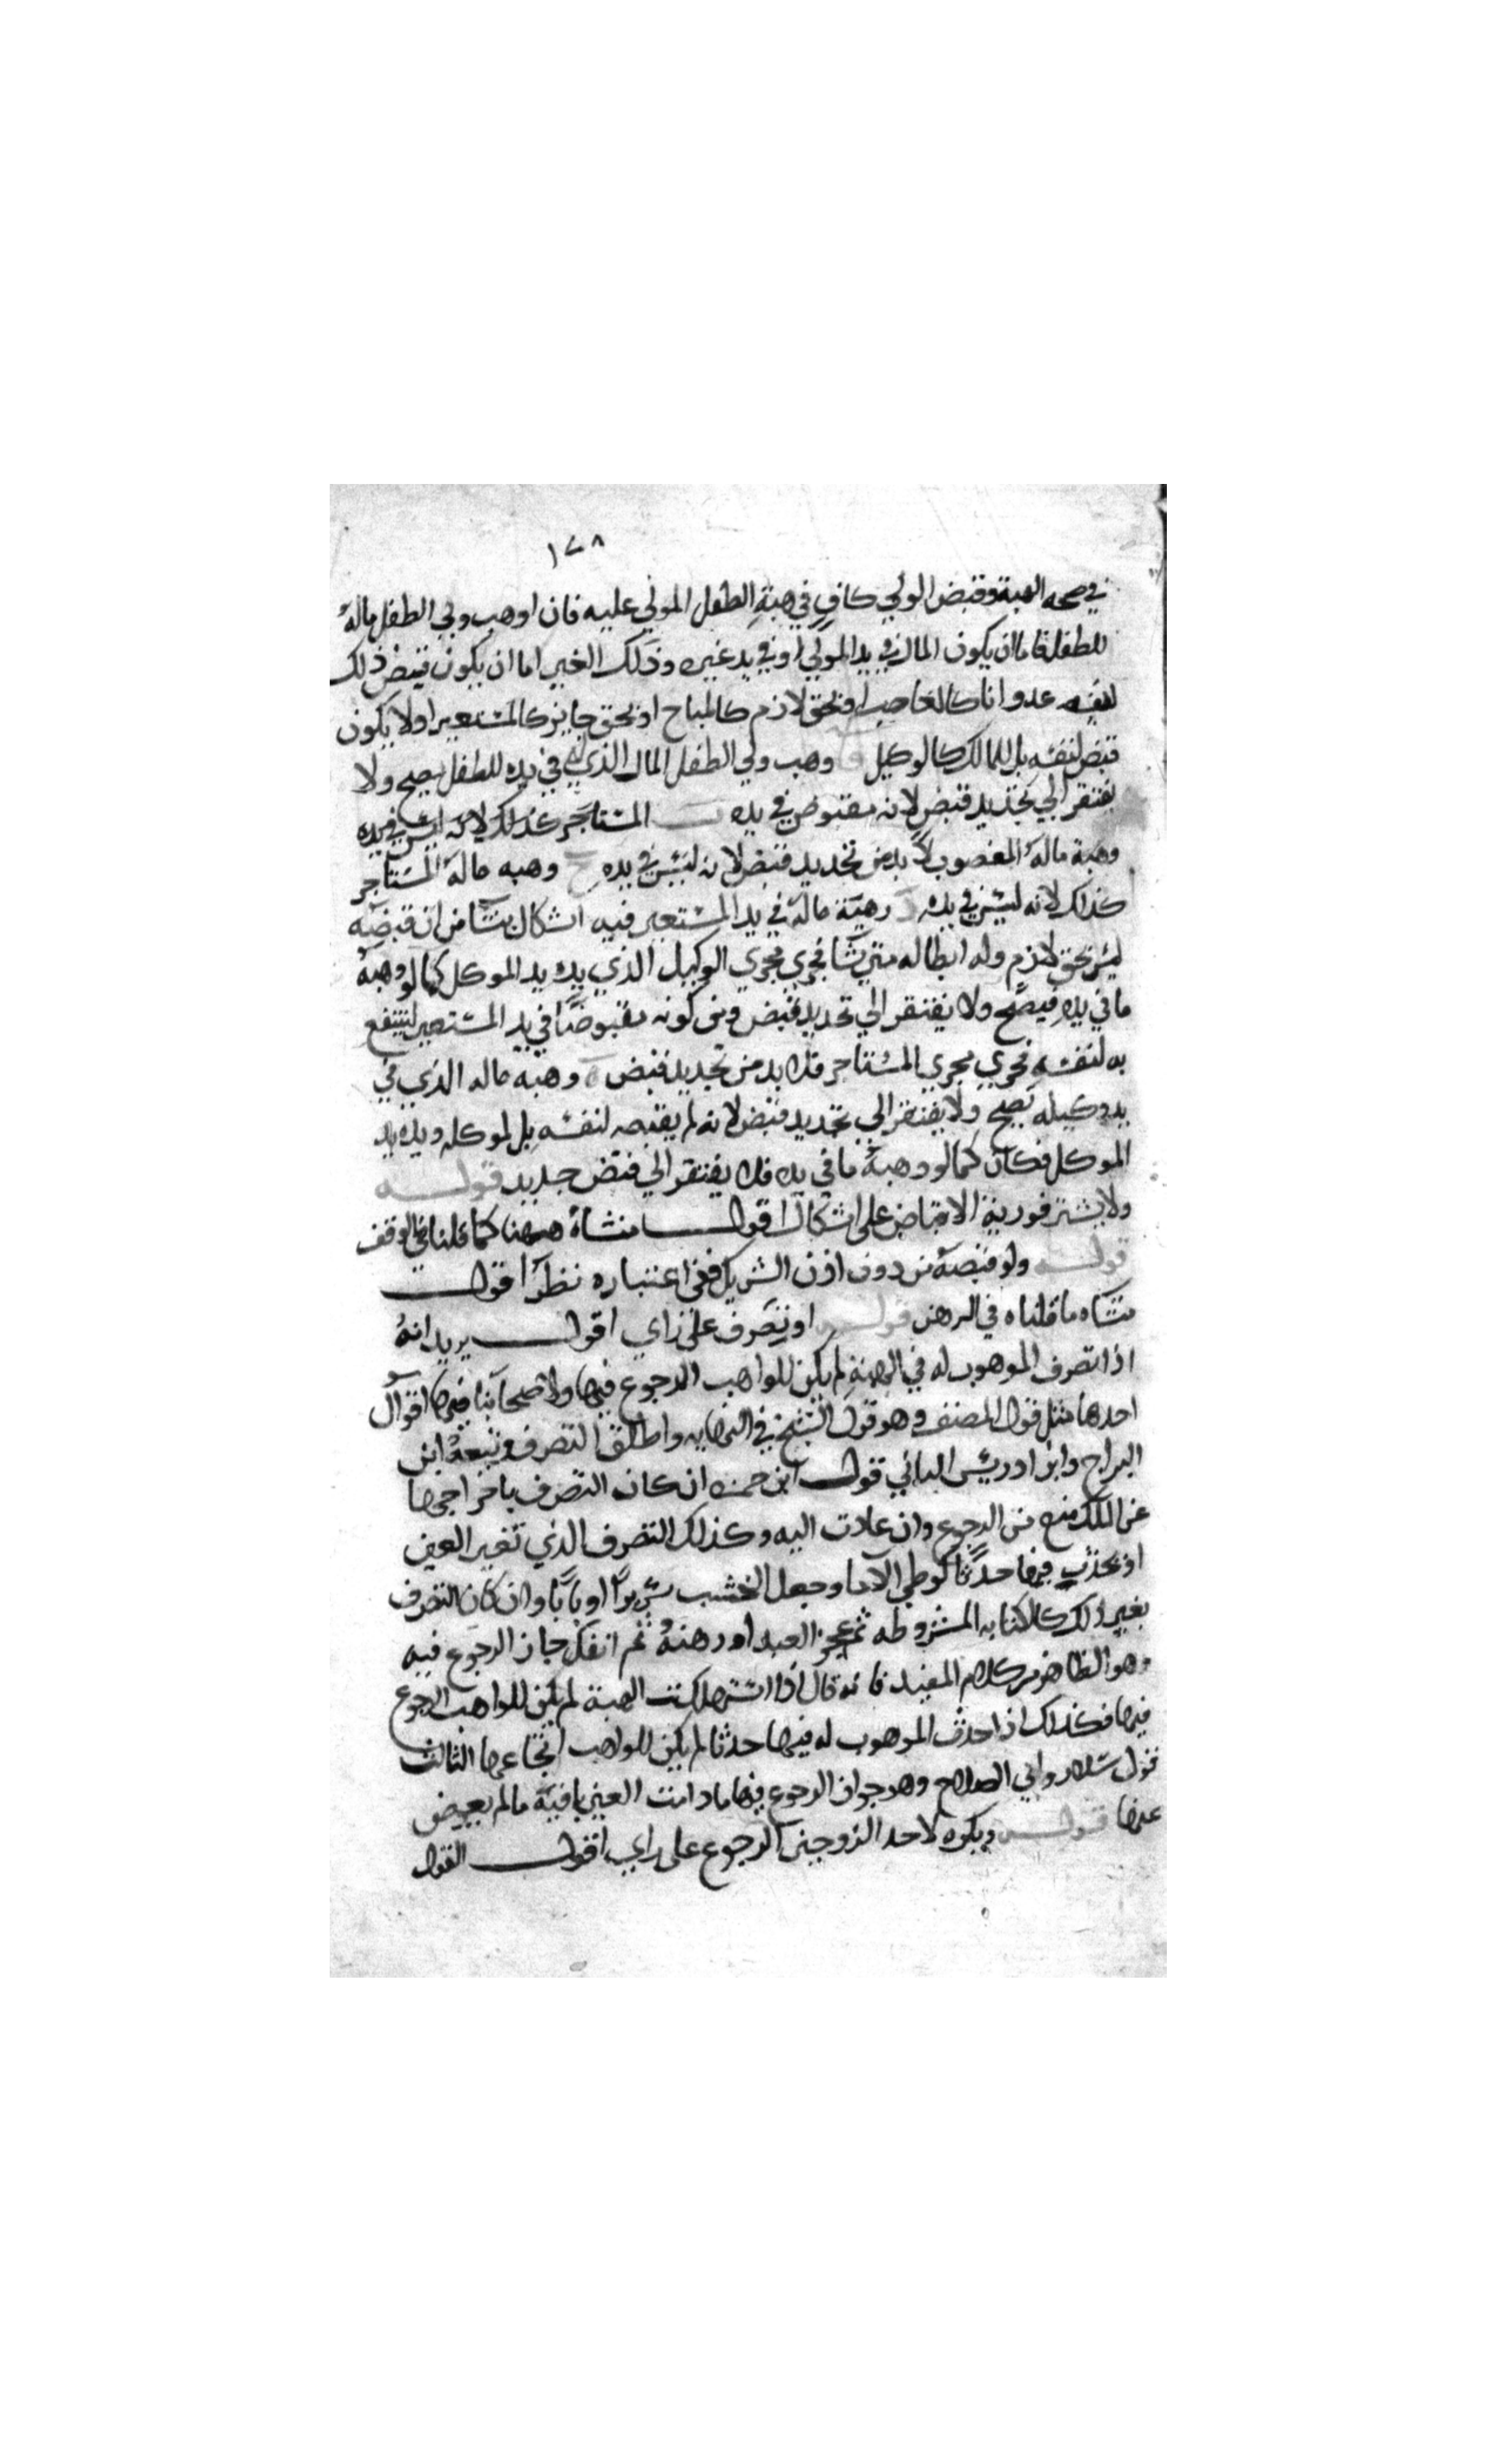 ١٧٨
في صحه الهبة وقبض الولي كافٍ في هبة الطفل المولي عليه فان اوهب ولي الطفل مالهُ
للطفل فاما ان يكون المال في يد المولي او في يد غيره وذلك الغير اما ان يكون قبض ذلك
لنفسه عدوانا كالغاصب او بحق لازم كالمباح او بحق جايز كالمستعير او لا يكون
قبض لنفسه بل للمالك كالوكيل وهب ولي الطفل المال الذي في يده للطفل يصح ولا
يفتقر الي تجديد قبض لانه مقبوض في يده ب المستاجر كذلك لانه ليس في يده
وهبة ماله المغصوب لا بد من تجديد قبض لانه ليس في يده ح وهبه ماله المستاجر
كذلك لانه ليس في يده د وهبة ماله في يد المستعير فيه اشكال ينشا من ان قبضه
ليس بحق لازم وله ابطاله متي شا فجري مجري الوكيل الذي يده يد الموكل كما لو وهبه
ما في يده فيصح ولا يفتقر الي تجديد قبض ومن كونه مقبوضًا في يد المستعير لينتفع
به لنفسه فجري مجري المستاجر فلا بد من تجديد قبض ه وهبه ماله الذي في
يد وكيله يصح ولا يفتقر الي تجديد قبض لانه لم يقبضه لنفسه بل لموكله ويده يد
الموكل فكان كما لو وهبه ما في يده فلا يفتقر الي قبض جديد قوله
ولا يشتر فورية الاقباض على اشكال اقول منشاه ههنا كما قلنا في الوقف
قوله ولو قبضه من دون اذن الشريك ففي اعتباره نظر اقول
منشاه ما قلناه في الرهن قوله او يتصرف على راي اقول يريد انهُ
اذا تصرف الموهوب له في الهبة لم يكن للواهب الرجوع فيها ولاصحابنا فيها اقوال
احدها مثل قول المصنف وهو قول الشيخ في النهايه واطلق التصرف وتبعه ابن
البراج وابن ادريس الباني قول ابن حمزه ان كان التصرف باخراجها
عن الملك منع من الرجوع وان عادت اليه وكذلك التصرف الذي تغير العين
او يحدث فيها حدثًا كوطي الاما وجعل الخشب سريرًا او بابًا وان كان التصرف
بغير ذلك كالكتابه المشروطه ثم عجز العبد او رهنهُ ثم انفك جاز الرجوع فيه
وهو الظاهر من كلام المفيد فانه قال اذا استهلكت الهبة لم يكن للواهب الرجوع
فيها فكذلك اذ احدث الموهوب له فيها حدثا لم يكن للواهب ارتجاعها الثالث
قول سلار وابي الصلاح وهو جواز الرجوع فيها ما دامت العين باقية ما لم يعوض
عنها قوله ويكره لاحد الزوجين الرجوع على راي اقول القول